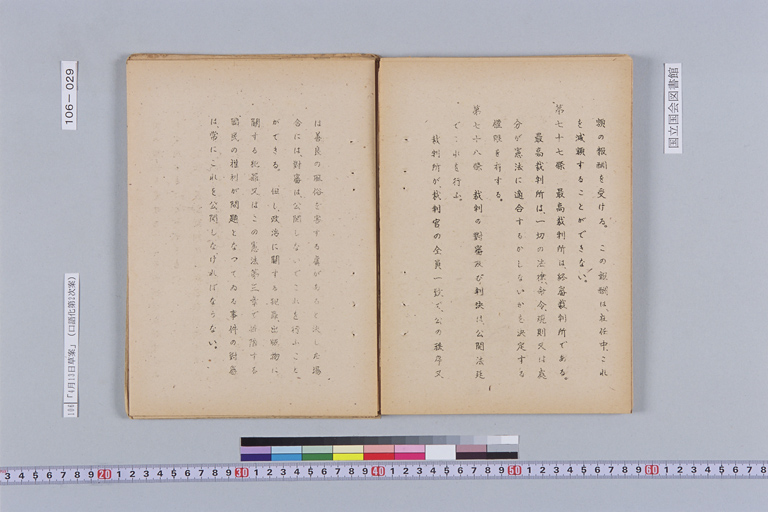 額の報酬を受ける。この報酬は、在任中、これ
を減額することができない。
第七十七條　最高裁判所は、終審裁判所である。
最高裁判所は、一切の法律、命令、規則又は處
分が憲法に適合するかしないかを決定する
權限を有する。
第七十八條　裁判の對審及び判決は、公開法廷
でこれを行ふ。
裁判所が、裁判官の全員一致で、公の秩序又
は善良の風俗を害する虞があると決した場
合には、對審は、公開しないでこれを行ふこと
ができる。但し、政治に關する犯罪、出版物に
關する犯罪又はこの憲法第三章で保障する
國民の權利が問題となつてゐる事件の對審
は、常にこれを公開しなければならない。
106－029
国立国会図書館
106「4月13日草案」（口語化第2次案）
3 4 5 6 7 8 9 20 1 2 3 4 5 6 7 8 9 30 1 2 3 4 5 6 7 8 9 40 1 2 3 4 5 6 7 8 9 50 1 2 3 4 5 6 7 8 9 60 1 2 3 4 5 6 7 8